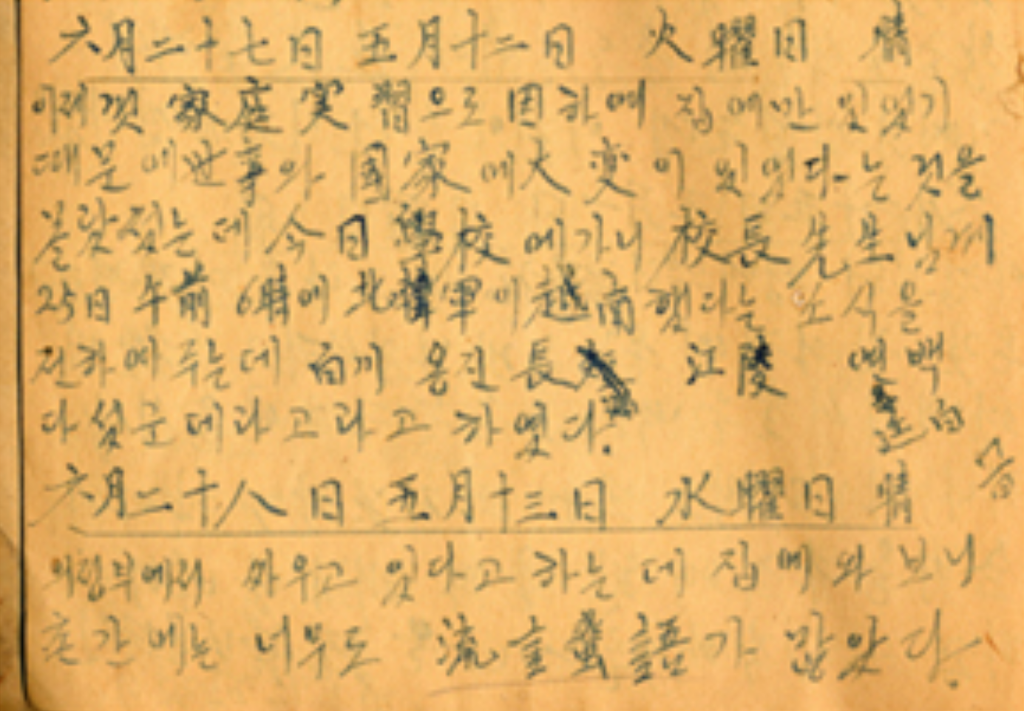 六月二十七日 五月十二日 火曜日 晴
이제껏 家庭实習으로 因하여 집에만 있었기
때문에 世事와 國家에 大変이 있었다는 것을
몰랐었는데 今日 學校에가니 校長先生님게
25日 午前 6時에 北韓軍이 越南했다는 소식을
전하여주는데 白川 옹진 長 江陵 연백
다섯군데라고라고 하였다. 延白
六月二十八日 五月十三日 水曜日 晴
의정부에서 싸우고 있다고 하는데 집에 와 보니
촌간에는 너무도 流言蜚語가 많았다.